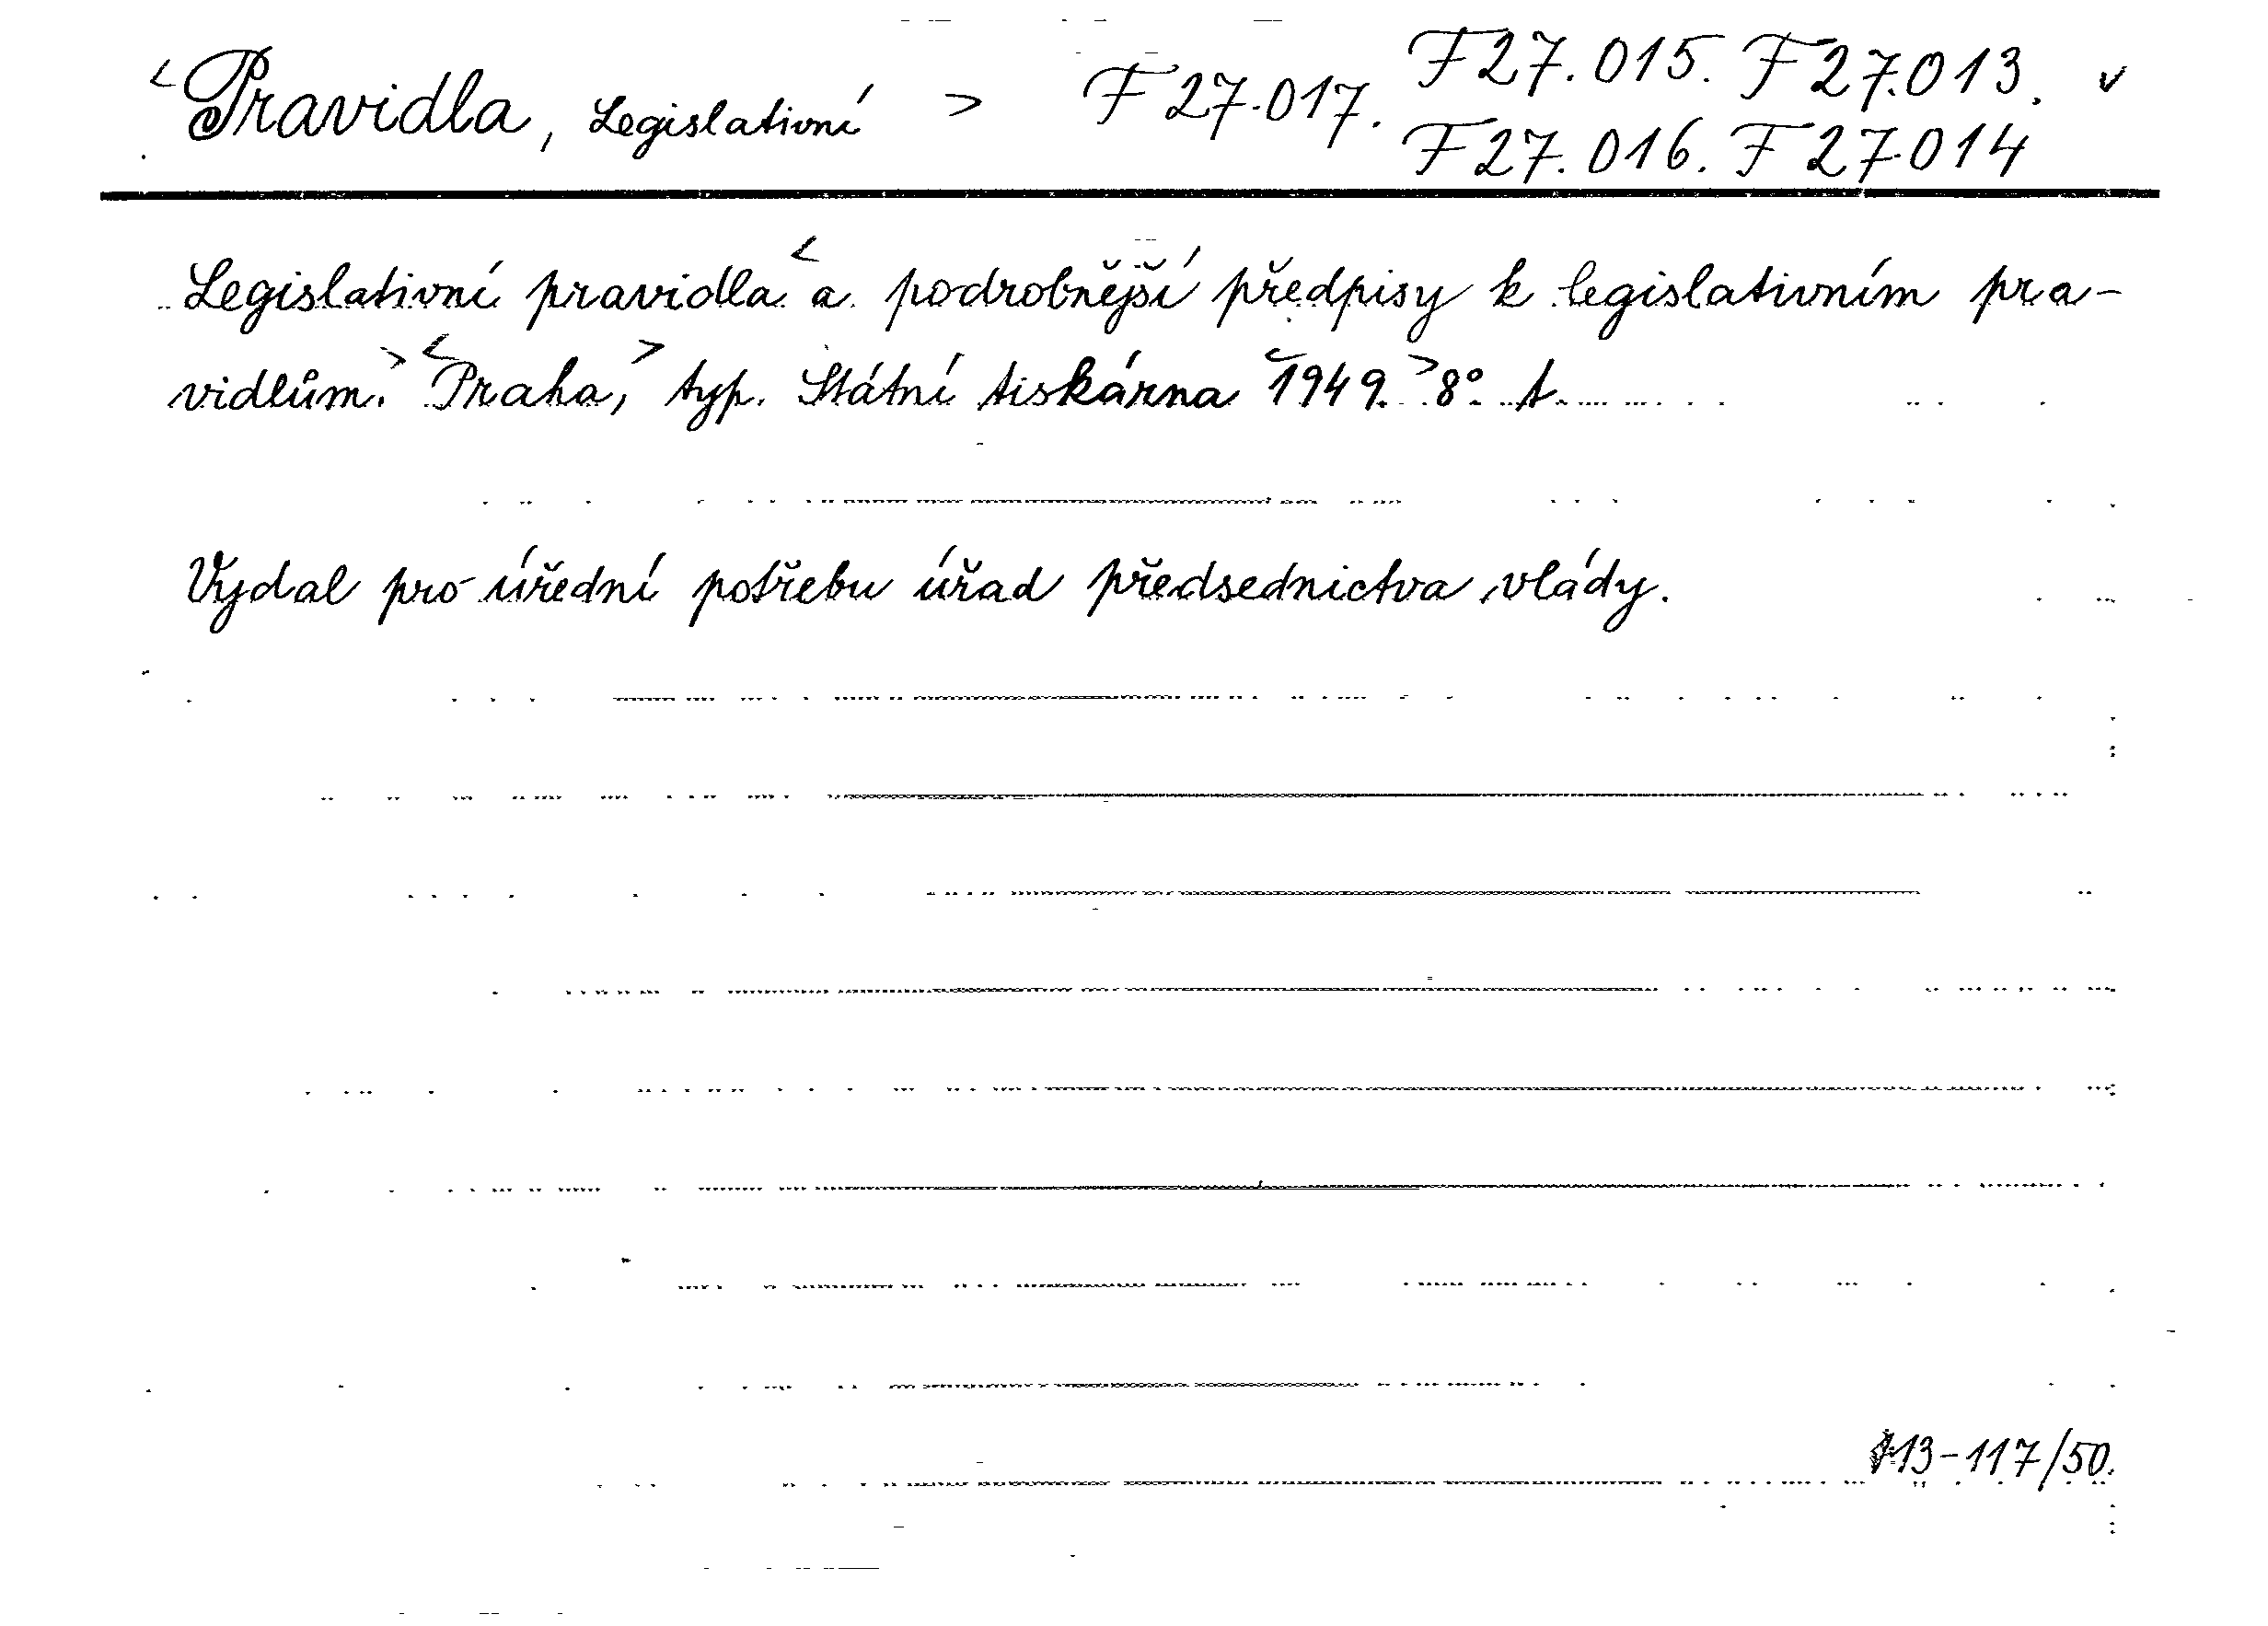 <Pravidla, Legislativní > F 27.017. F 27.015. F 27.013. v
F 27.016. F 27.014
Legislativní pravidla < a podrobnější předpisy k legislativním pra-
vidlům. > < Praha, > typ. Státní tiskárna < 1949. > 8° t.
Vydal pro úřední potřebu úřad předsednictva vlády.
113-117/50.